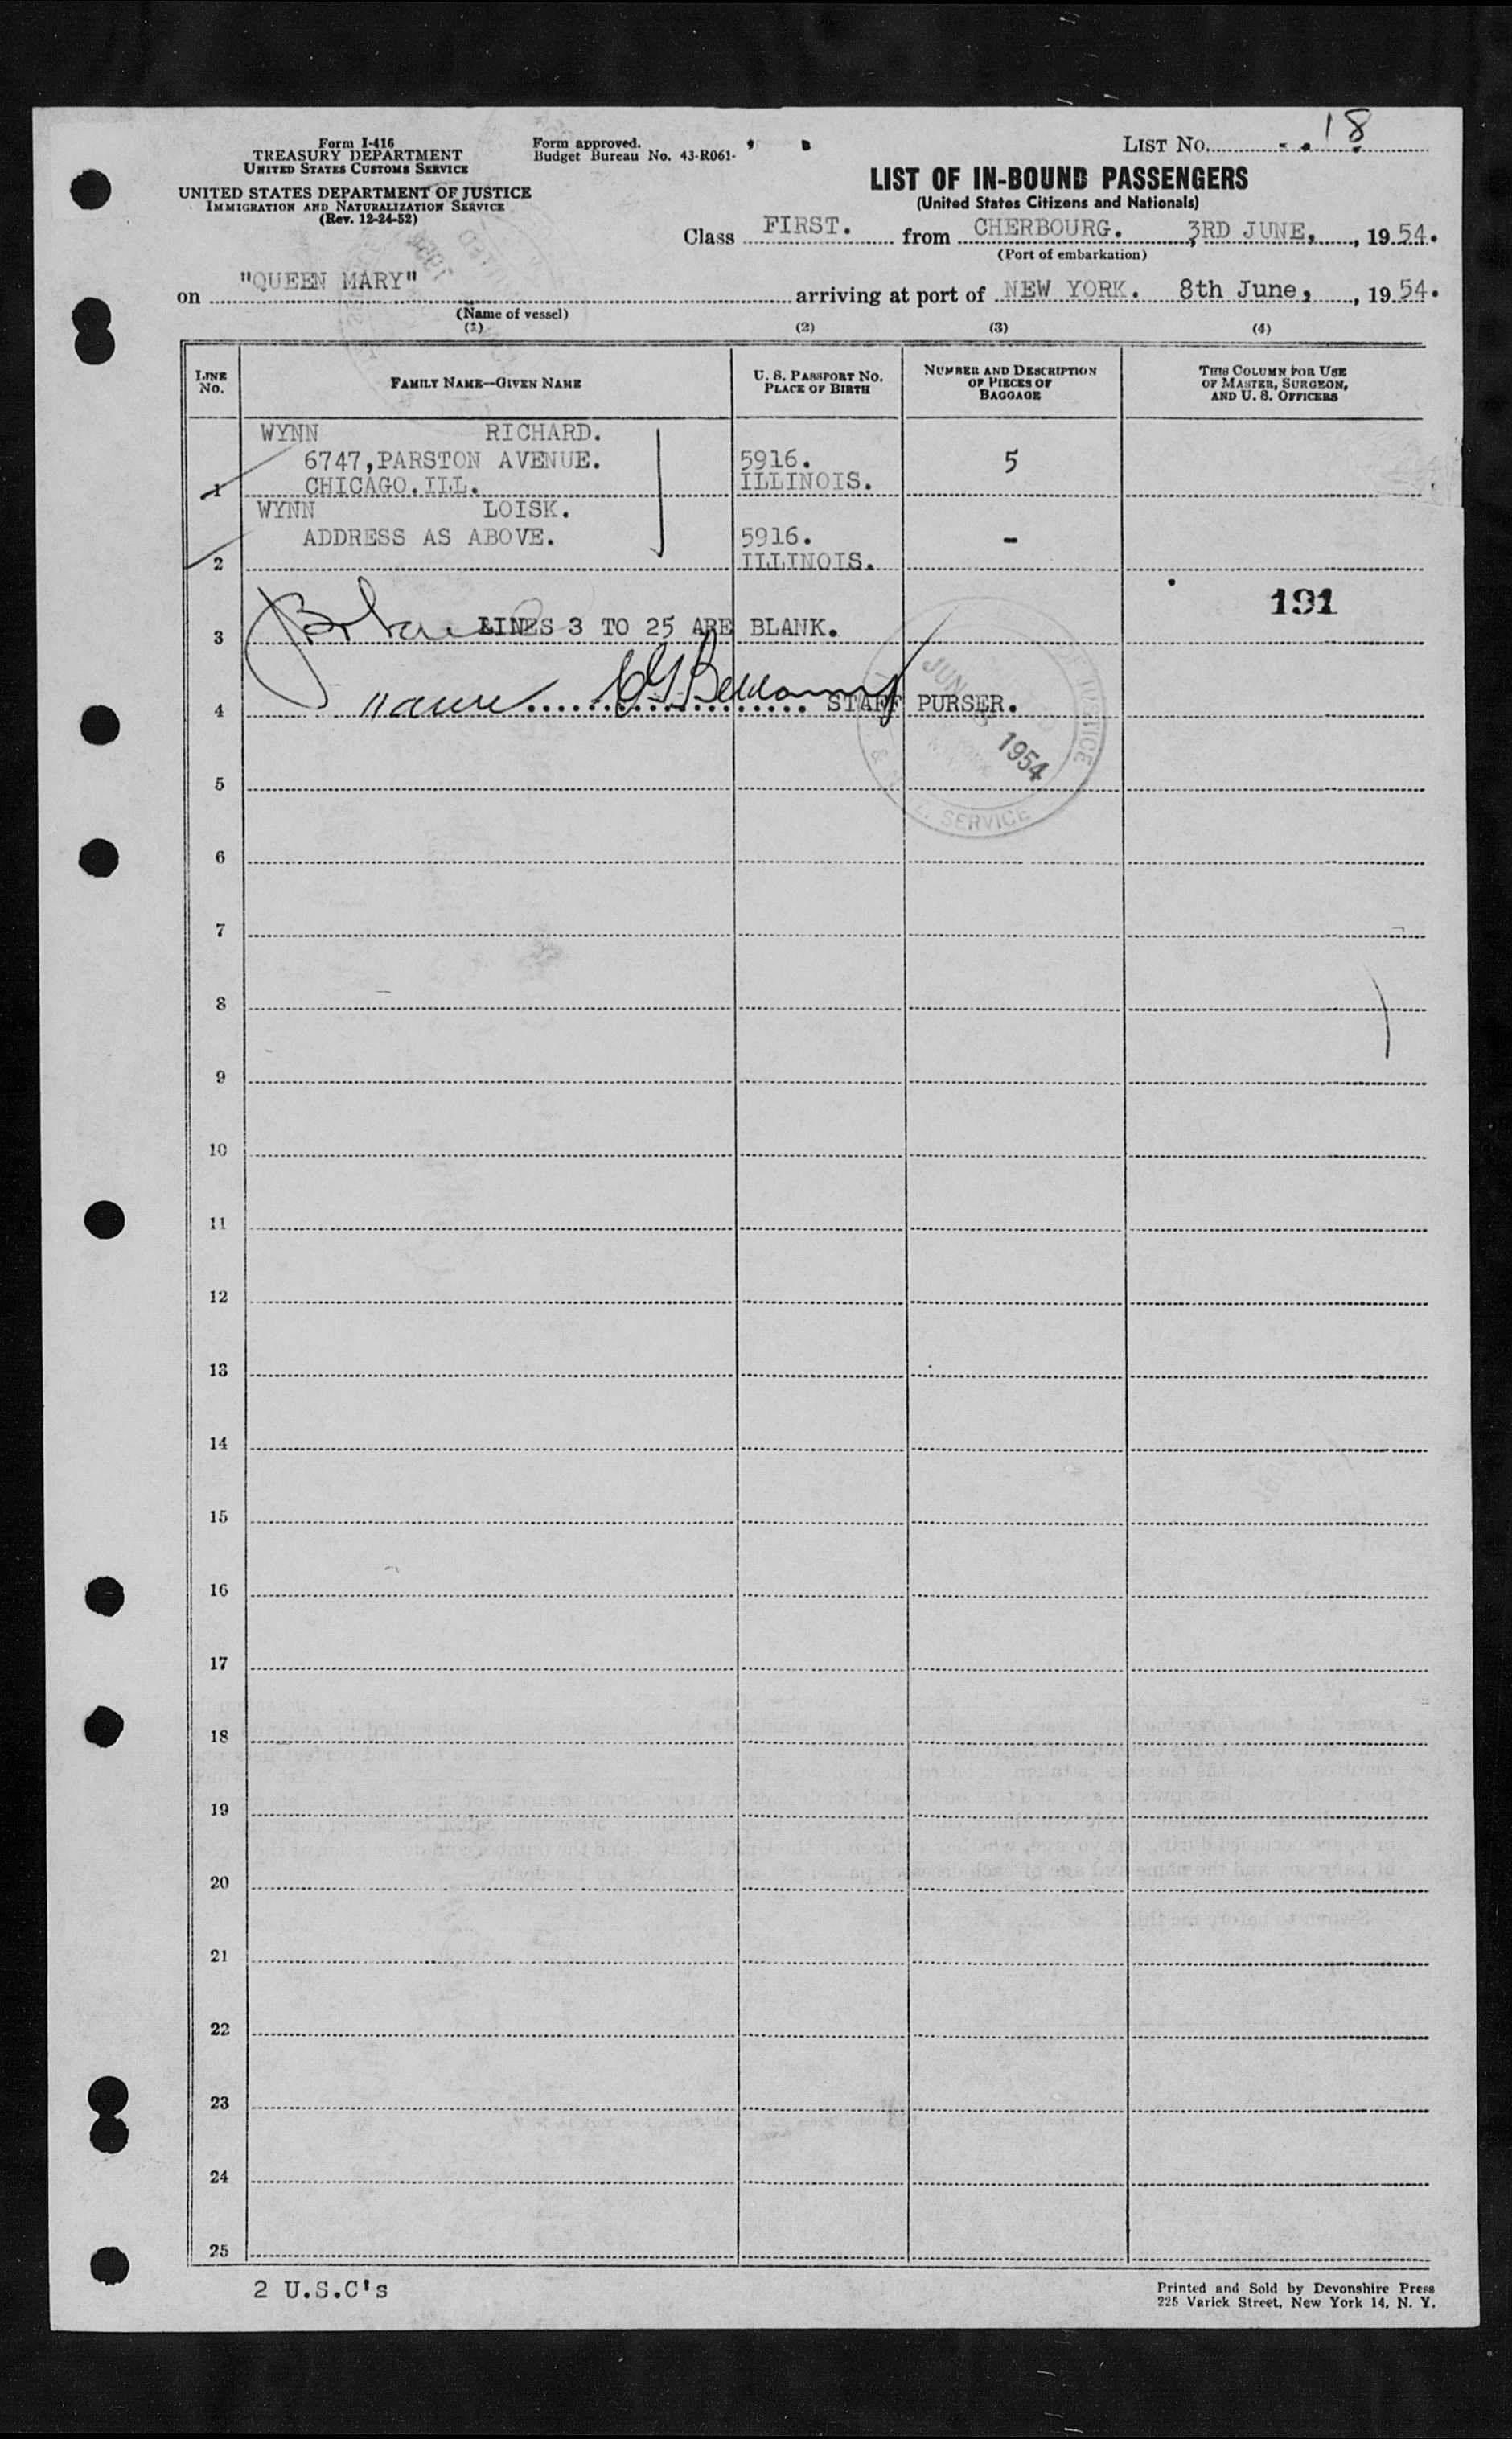 Form I-416
TREASURY DEPARTMENT
UNITED STATES CUSTOMS SERVICE
UNITED STATES DEPARTMENT OF JUSTICE
IMMIGRATION AND NATURALIZATION SERVICE
(Rev. 12-24-52)
Form approved.
Budget Bureau No. 43-R061-
LIST NO. 18
LIST OF IN-BOUND PASSENGERS
(United States Citizens and Nationals)
Class FIRST. from CHERBOURG. 3RD JUNE, , 1954.
(Port of embarkation)
on "QUEEN MARY" arriving at port of NEW YORK. 8th June, , 1954.
(Name of vessel)
(1) (2) (3) (4)
LINE NO. FAMILY NAME—GIVEN NAME U. S. PASSPORT NO. PLACE OF BIRTH NUMBER AND DESCRIPTION OF PIECES OF BAGGAGE THIS COLUMN FOR USE OF MASTER, SURGEON, AND U. S. OFFICERS
WYNN RICHARD.
6747,PARSTON AVENUE. 5916. 5
1 CHICAGO.ILL. ILLINOIS.
WYNN LOISK.
ADDRESS AS ABOVE. 5916. -
2 ILLINOIS.
191
3 LINES 3 TO 25 ARE BLANK.
4 STAFF PURSER.
JUN 1954
JUSTICE
& SERVICE
5
6
7
8
9
10
11
12
13
14
15
16
17
18
19
20
21
22
23
24
25
2 U.S.C's
Printed and Sold by Devonshire Press
225 Varick Street, New York 14, N. Y.